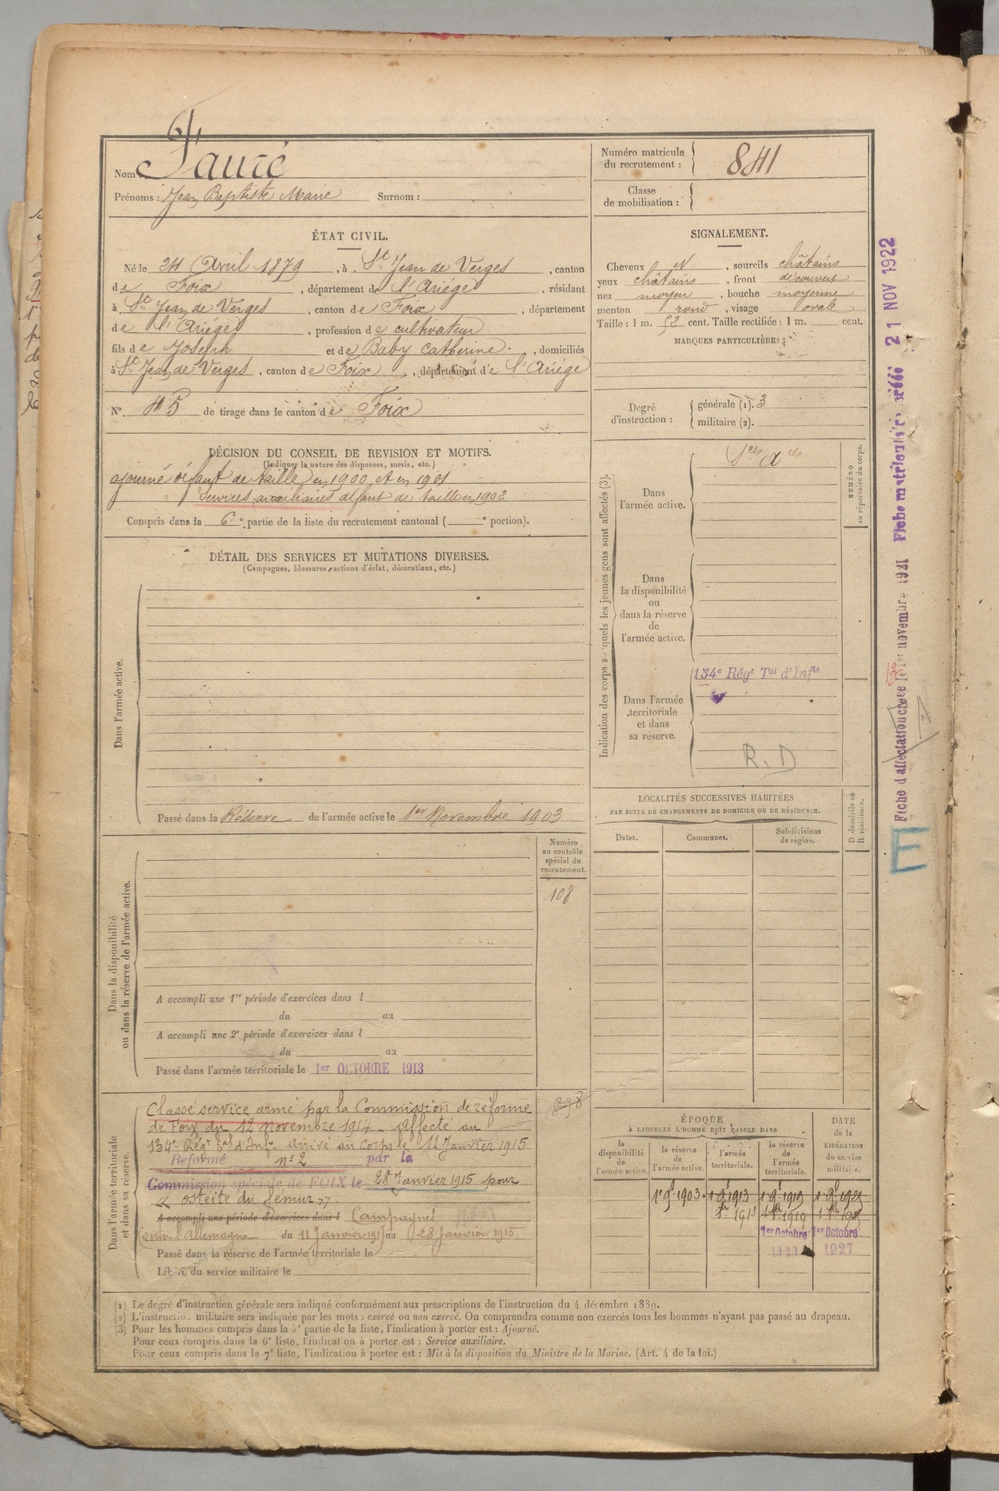 Nom Fauré
Prénoms : Jean Baptiste Marie Surnom :
Numéro matricule du recrutement : 841
Classe de mobilisation :
ÉTAT CIVIL.
Né le 24 Avril 1879, à St Jean de Verges, canton
de Foix, département de l'Ariège, résidant
à St Jean de Verges, canton de Foix, département
de l'Ariège, profession de cultivateur
fils de Joseph et de Baby Catherine, domiciliés
à St Jean de Verges, canton de Foix, département de l'Ariège
N° 45 de tirage dans le canton de Foix
SIGNALEMENT.
Cheveux et, sourcils châtains
yeux châtains, front découvert
nez moyen, bouche moyenne
menton rond, visage ovale
Taille : 1 m. 52 cent. Taille rectifiée : 1 m. cent.
MARQUES PARTICULIÈRES :
Degré d'instruction : générale (1). 3
militaire (2).
DÉCISION DU CONSEIL DE REVISION ET MOTIFS.
(Indiquer la nature des dispenses, sursis, etc.)
ajourné défaut de taille en 1900 et en 1901
services auxiliaires défaut de taille en 1902
Compris dans la 6e partie de la liste du recrutement cantonal ( e portion).
DÉTAIL DES SERVICES ET MUTATIONS DIVERSES.
(Campagnes, blessures, actions d'éclat, décorations, etc.)
Dans l'armée active.
Passé dans la Réserve de l'armée active le 1er Novembre 1903
Indication des corps auxquels les jeunes gens sont affectés (3).
Dans l'armée active.
NUMÉRO au répertoire du corps.
Dans la disponibilité ou dans la réserve de l'armée active.
Dans l'armée territoriale et dans sa réserve.
134e Régt Tal d'Infie
R. D
LOCALITÉS SUCCESSIVES HABITÉES
PAR SUITE DE CHANGEMENTS DE DOMICILE OU DE RÉSIDENCE.
Dates. Communes. Subdivisions de région. D domicile ou R résidence.
Dans la disponibilité ou dans la réserve de l'armée active.
Numéro au contrôle spécial du recrutement.
108
A accompli une 1re période d'exercices dans l
du au
A accompli une 2e période d'exercices dans l
du au
Passé dans l'armée territoriale le 1er OCTOBRE 1913
Dans l'armée territoriale et dans sa réserve.
Classé service armé par la Commission de réforme
de Foix du 12 novembre 1914. Affecté au
134e Régt Tal d'Infie arrivé au Corps le 11 Janvier 1915
Réformé n° 2 par la
Commission spéciale de FOIX le 28 Janvier 1915 pour
ostéite du fémur
A accompli une période d'exercices dans l Campagnes
contre l'Allemagne du 11 Janvier 1915 au 28 Janvier 1915
Passé dans la réserve de l'armée territoriale le
Libéré du service militaire le
ÉPOQUE
À LAQUELLE L'HOMME DOIT PASSER DANS
DATE de la LIBÉRATION du service militaire.
la disponibilité de l'armée active. la réserve de l'armée active. l'armée territoriale. la réserve de l'armée territoriale.
1er 9bre 1903
1er Octobre 1er Octobre
1927
(1) Le degré d'instruction générale sera indiqué conformément aux prescriptions de l'instruction du 4 décembre 1889.
(2) L'instruction militaire sera indiquée par les mots : exercé ou non exercé. On comprendra comme non exercés tous les hommes n'ayant pas passé au drapeau.
(3) Pour les hommes compris dans la 5e partie de la liste, l'indication à porter est : Ajourné.
Pour ceux compris dans la 6e liste, l'indication à porter est : Service auxiliaire.
Pour ceux compris dans la 7e liste, l'indication à porter est : Mis à la disposition du Ministre de la Marine. (Art. 4 de la loi.)
Fiche d'affectation créée le 1er novembre 1921 Fiche matriculaire créée 21 NOV 1922
E